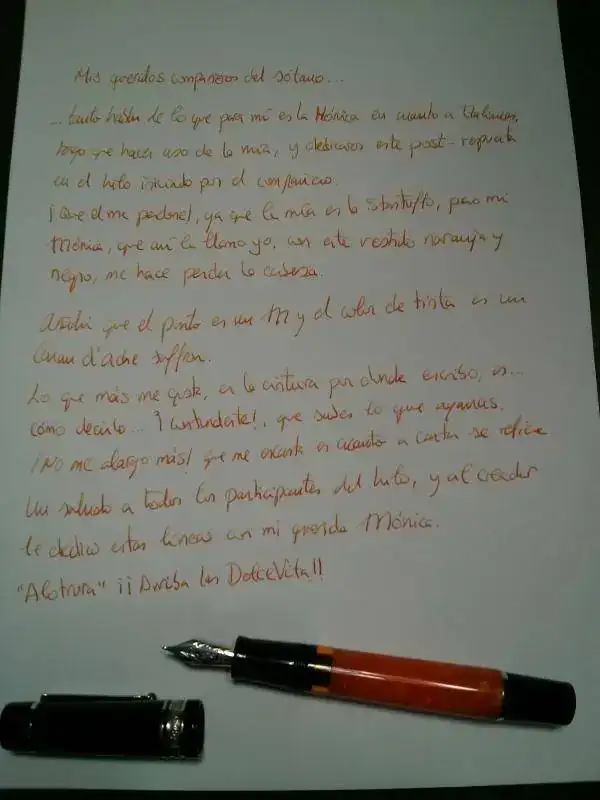 Mis queridos compañeros del sótano...
... tanto hablar de lo que para mí es la Mónica en cuanto a Italianas,
tengo que hacer uso de la mía, y dedicaros este post-respuesta
en el hilo iniciado por el compañero.
¡Que él me perdone!, ya que la mía es la Stantuffo, pero mi
Mónica, que así la llamo yo, con este vestido naranja y
negro, me hace perder la cabeza.
que el punto es un M y el color de tinta es un
Caran d'ache saffron.
Lo que más me gusta, es la cintura por donde escribo, es...
cómo decirlo... ¡contundente!, que sabes lo que agarras.
¡No me alargo más! que me encanta en cuanto a carta se refiere
Un saludo a todos los participantes del hilo, y al creador
le dedico estas líneas con mi querida Mónica.
¡¡Arriba las DolceVita!!